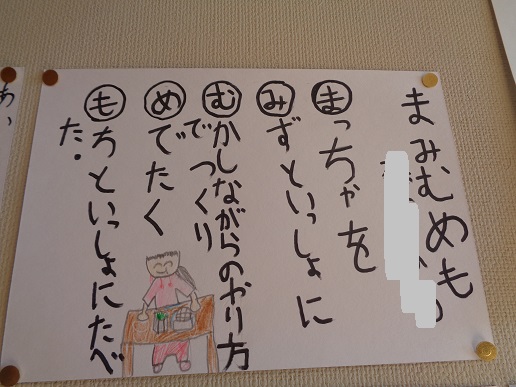 まみむめも
まっちゃを
みずといっしょに
むかしながらのやり方
でつくり
めでたく
もちといっしょにたべ
た.
あ、